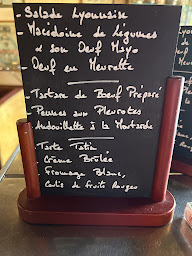 - Salade Lyonnaise
- Macédoine de légumes
& son Oeuf Mayo
- Oeuf en Meurette
- Tartare de Bœuf Préparé
- Pennes aux Pleurotes
- Andouillette à la Moutarde
- Tarte Tatin
- Crème Brûlée
- Fromage Blanc,
Coulis de fruits Rouges